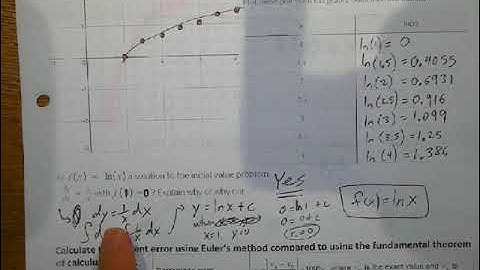 ln(x)
ln(1) = 0
ln(1.5) = 0.4055
ln(2) = 0.6931
ln(2.5) = 0.916
ln(3) = 1.099
ln(3.5) = 1.25
ln(4) = 1.386
Is f(x) = ln(x) a solution to the initial value problem
with f(1) = 0? Explain why or why not.
Yes
dy = 1/x dx
y = lnx + c
when
x=1, y=0
0 = ln1 + c
0 = 0 + c
c = 0
f(x) = ln x
Calculate the error using Euler's method compared to using the fundamental theorem
of calculus